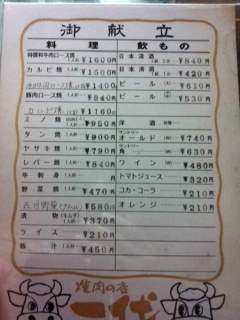 御献立
料理
飲もの
特選和牛肉ロース焼 1人前 ¥1600円
カルビ焼 1人前 ¥1500円
¥1400円
豚肉ロース焼 1人前 ¥840円
¥1160円
ミノ焼 1人前 ¥950円
タン焼 ¥900円
ヤサキ焼 ¥790円
レバー焼 ¥840円
牛刺身 1人前 円
野菜焼 ¥470円
¥580円
漬物(キムチ) ¥370円
ライス ¥210円
豚汁 ¥450円
日本清酒 ¥840円
日本清酒 ¥420円
ビール ¥610円
ビール ¥530円
洋酒
サントリーオールド ¥740円
サントリー角 ¥630円
ワイン ¥480円
トマトジュース ¥320円
コカ・コーラ ¥210円
オレンジ ¥210円
焼肉の店
一代